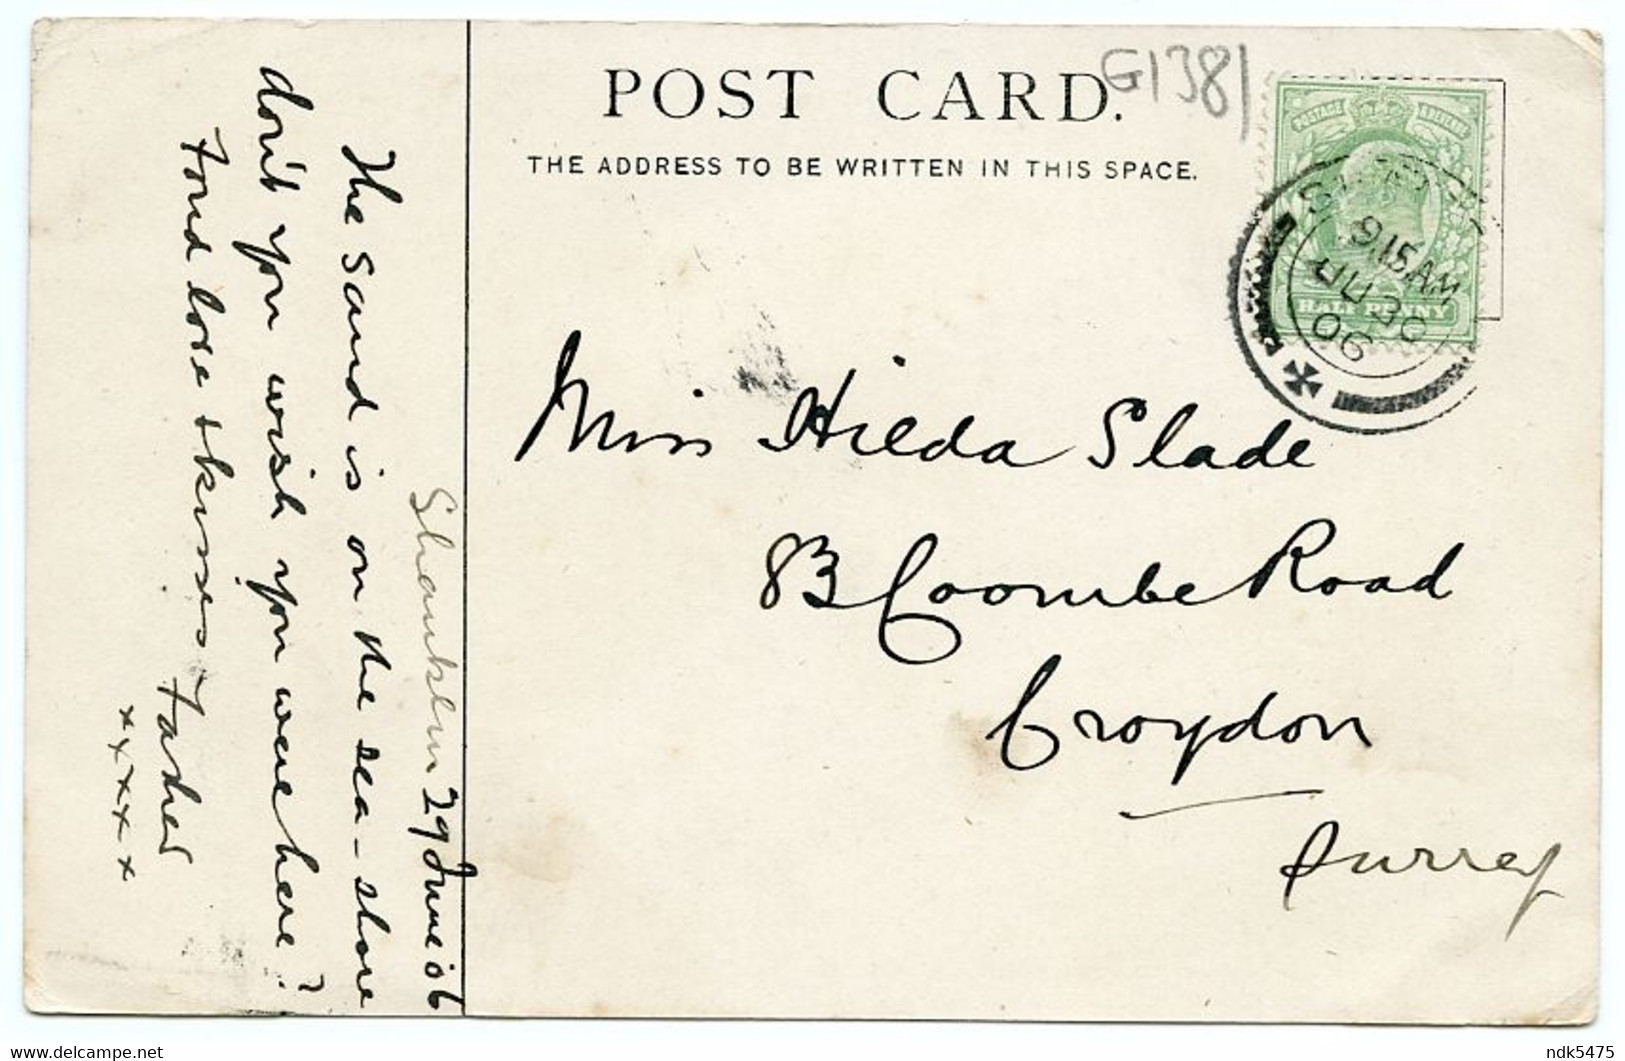 POST CARD.
G1381
THE ADDRESS TO BE WRITTEN IN THIS SPACE.
POSTAGE REVENUE
HALF PENNY
9 15 AM
JU 30
06
Miss Hilda Slade
83 Coombe Road
Croydon
Surrey
Shanklin 29 June 06
The sand is on the sea-shore
don't you wish you were here?
Fond love & kisses Father
x x x x x
ndk5475